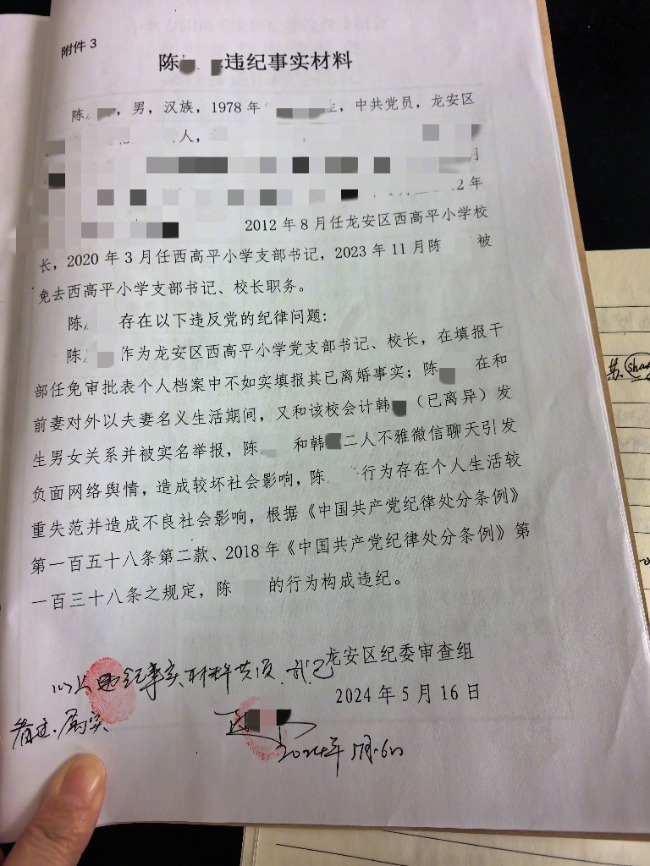 附件3
陈 违纪事实材料
陈 ,男,汉族,1978年 生,中共党员,龙安区
人,
月
2年
2012年8月任龙安区西高平小学校
长,2020年3月任西高平小学支部书记,2023年11月陈 被
免去西高平小学支部书记、校长职务。
陈 存在以下违反党的纪律问题:
陈 作为龙安区西高平小学党支部书记、校长,在填报干
部任免审批表个人档案中不如实填报其已离婚事实;陈 在和
前妻对外以夫妻名义生活期间,又和该校会计韩 (已离异)发
生男女关系并被实名举报,陈 和韩 二人不雅微信聊天引发
负面网络舆情,造成较坏社会影响,陈 行为存在个人生活较
重失范并造成不良社会影响,根据《中国共产党纪律处分条例》
第一百五十八条第二款、2018年《中国共产党纪律处分条例》第
一百三十八条之规定,陈 的行为构成违纪。
龙安区纪委审查组
以上违纪事实材料共1页,我已
2024年5月16日
看过,属实
2024年5月16日